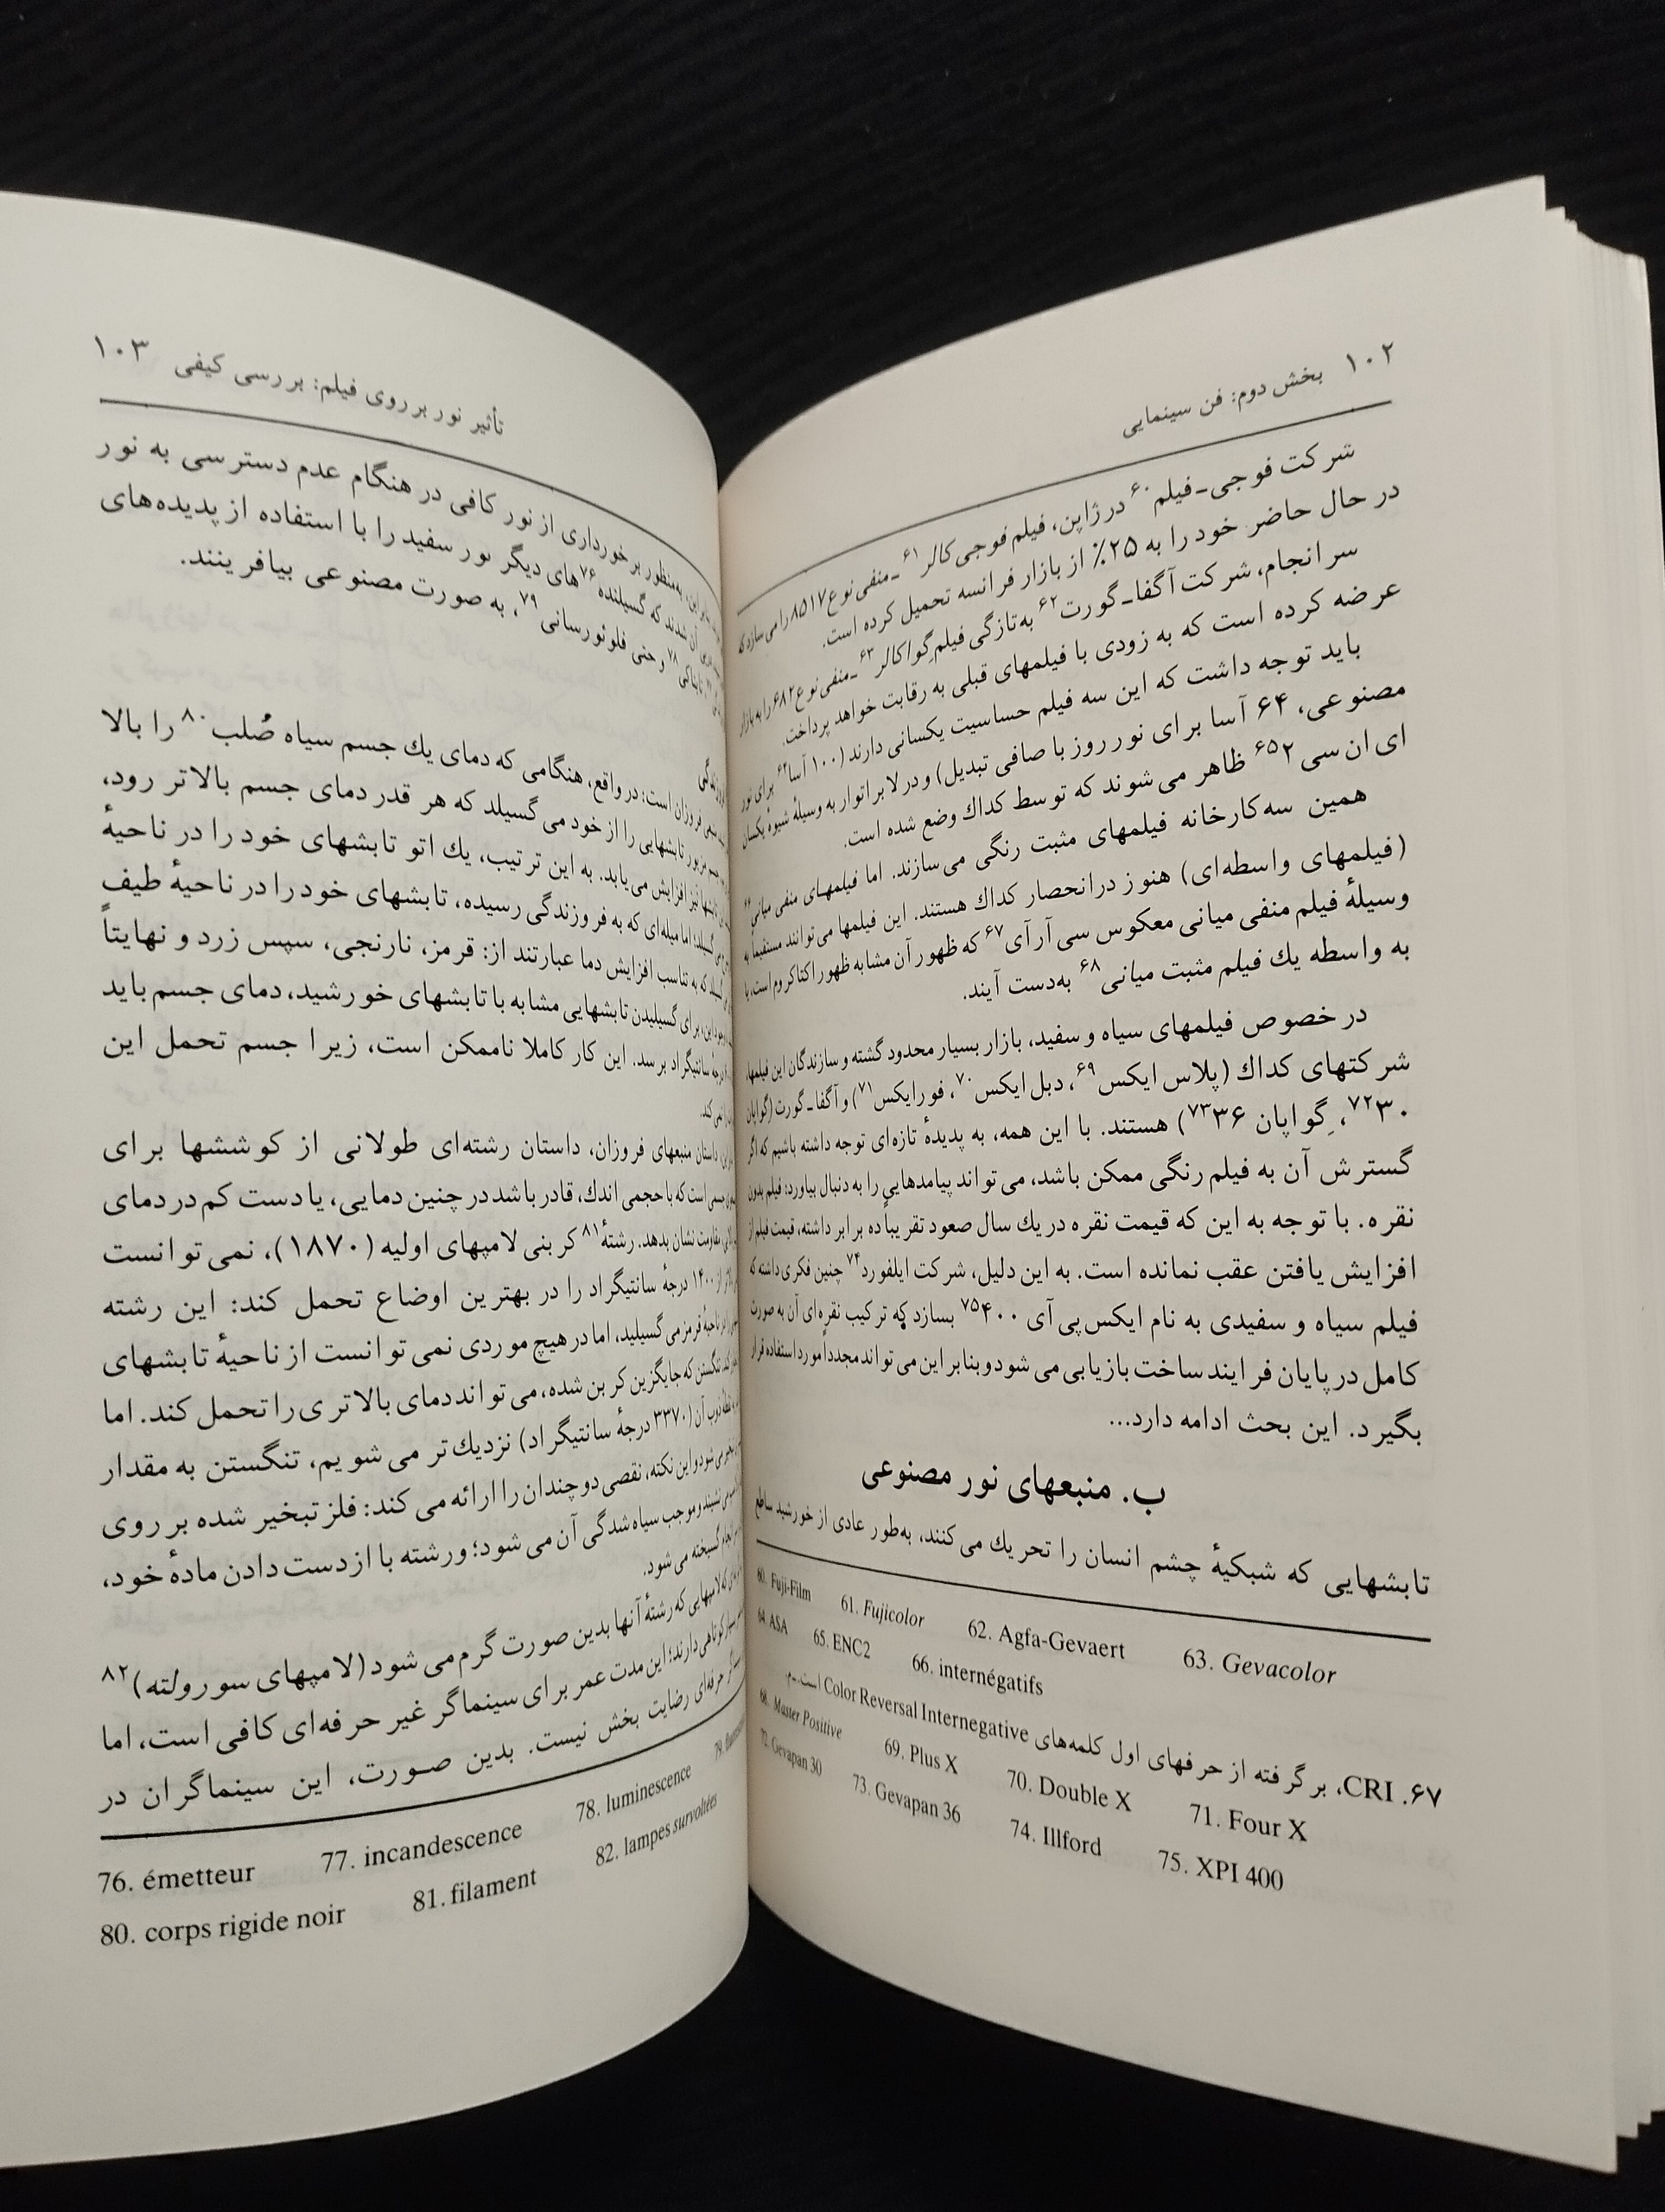 ۱۰۲ بخش دوم: فن سینمایی
شرکت فوجی-فیلم۶۰ در ژاپن، فیلم فوجی‌کالر۶۱ -منفی نوع ۸۵۱۷ را می‌سازد که
در حال حاضر خود را به ۲۵٪ از بازار فرانسه تحمیل کرده است.
سرانجام، شرکت آگفا-گورت۶۲ به‌تازگی فیلم گِواکالر۶۳ -منفی نوع ۶۸۲ را به بازار
عرضه کرده است که به زودی با فیلمهای قبلی به رقابت خواهد پرداخت.
باید توجه داشت که این سه فیلم حساسیت یکسانی دارند (۱۰۰ آسا۶۴ برای نور
مصنوعی، ۶۴ آسا برای نور روز با صافی تبدیل) و در لابراتوار به وسیلهٔ شیوهٔ یکسان
ای ان سی ۲۶۵ ظاهر می‌شوند که توسط کداك وضع شده است.
همین سه کارخانه فیلمهای مثبت رنگی می‌سازند. اما فیلمهای منفی میانی۶۶
(فیلمهای واسطه‌ای) هنوز درانحصار کداك هستند. این فیلمها می‌توانند مستقیماً به
وسیلهٔ فیلم منفی میانی معکوس سی آر آی۶۷ که ظهور آن مشابه ظهور اکتاکروم است، یا
به واسطه یك فیلم مثبت میانی۶۸ به‌دست آیند.
در خصوص فیلمهای سیاه و سفید، بازار بسیار محدود گشته و سازندگان این فیلمها،
شرکتهای کداك (پلاس ایکس۶۹، دبل ایکس۷۰، فور ایکس۷۱) و آگفا-گورت (گواپان
۳۰۷۲، گِواپان ۳۶۷۳) هستند. با این همه، به پدیدهٔ تازه‌ای توجه داشته باشیم که اگر
گسترش آن به فیلم رنگی ممکن باشد، می‌تواند پیامدهایی را به دنبال بیاورد: فیلم بدون
نقره. با توجه به این که قیمت نقره در یك سال صعود تقریباً ده برابر داشته، قیمت فیلم از
افزایش یافتن عقب نمانده است. به این دلیل، شرکت ایلفورد۷۴ چنین فکری داشته که
فیلم سیاه و سفیدی به نام ایکس پی آی ۴۰۰۷۵ بسازد که ترکیب نقره‌ای آن به صورت
کامل در پایان فرایند ساخت بازیابی می‌شود و بنابراین می‌تواند مجدداً مورد استفاده قرار
بگیرد. این بحث ادامه دارد...
ب. منبعهای نور مصنوعی
تابشهایی که شبکیهٔ چشم انسان را تحریك می‌کنند، به‌طور عادی از خورشید ساطع
60. Fuji-Film 61. Fujicolor 62. Agfa-Gevaert 63. Gevacolor
64. ASA 65. ENC2 66. internégatifs
۶۷. CRI، برگرفته از حرفهای اول کلمه‌های Color Reversal Internegative است.ـم.
68. Master Positive 69. Plus X 70. Double X 71. Four X
72. Gevapan 30 73. Gevapan 36 74. Illford 75. XPI 400
تأثیر نور بر روی فیلم: بررسی کیفی ۱۰۳
به‌منظور برخورداری از نور کافی در هنگام عدم دسترسی به نور
آن شدند که گسیلنده۷۶‌های دیگر نور سفید را با استفاده از پدیده‌های
تابناکی۷۸ و حتی فلوئورسانی۷۹، به صورت مصنوعی بیافرینند.
فروزان است: در واقع، هنگامی که دمای یك جسم سیاه صُلب۸۰ را بالا
جسم مزبور تابشهایی را از خود می‌گسیلد که هر قدر دمای جسم بالاتر رود،
تابشها نیز افزایش می‌یابد. به این ترتیب، یك اتو تابشهای خود را در ناحیهٔ
می‌گسیلد؛ اما میله‌ای که به فروزندگی رسیده، تابشهای خود را در ناحیهٔ طیف
که به تناسب افزایش دما عبارتند از: قرمز، نارنجی، سپس زرد و نهایتاً
برای گسیلیدن تابشهایی مشابه با تابشهای خورشید، دمای جسم باید
درجهٔ سانتیگراد برسد. این کار کاملا ناممکن است، زیرا جسم تحمل این
را نمی‌کند.
داستان منبعهای فروزان، داستان رشته‌ای طولانی از کوششها برای
جسمی است که با حجمی اندك، قادر باشد در چنین دمایی، یا دست کم در دمای
مقاومت نشان بدهد. رشتهٔ۸۱ کربنی لامپهای اولیه (۱۸۷۰)، نمی‌توانست
از ۱۴۰۰ درجهٔ سانتیگراد را در بهترین اوضاع تحمل کند: این رشته
ناحیهٔ قرمز می‌گسیلید، اما در هیچ موردی نمی‌توانست از ناحیهٔ تابشهای
تنگستن که جایگزین کربن شده، می‌تواند دمای بالاتری را تحمل کند. اما
ذوب آن (۳۳۷۰ درجهٔ سانتیگراد) نزدیك‌تر می‌شویم، تنگستن به مقدار
می‌شود و این نکته، نقصی دوچندان را ارائه می‌کند: فلز تبخیر شده بر روی
می‌نشیند و موجب سیاه شدگی آن می‌شود؛ و رشته با از دست دادن مادهٔ خود،
سرانجام گسیخته می‌شود.
که لامپهایی که رشتهٔ آنها بدین صورت گرم می‌شود (لامپهای سورولته)۸۲
بسیار کوتاهی دارند؛ این مدت عمر برای سینماگر غیر حرفه‌ای کافی است، اما
حرفه‌ای رضایت بخش نیست. بدین صورت، این سینماگران در
76. émetteur 77. incandescence 78. luminescence
80. corps rigide noir 81. filament 82. lampes survoltées